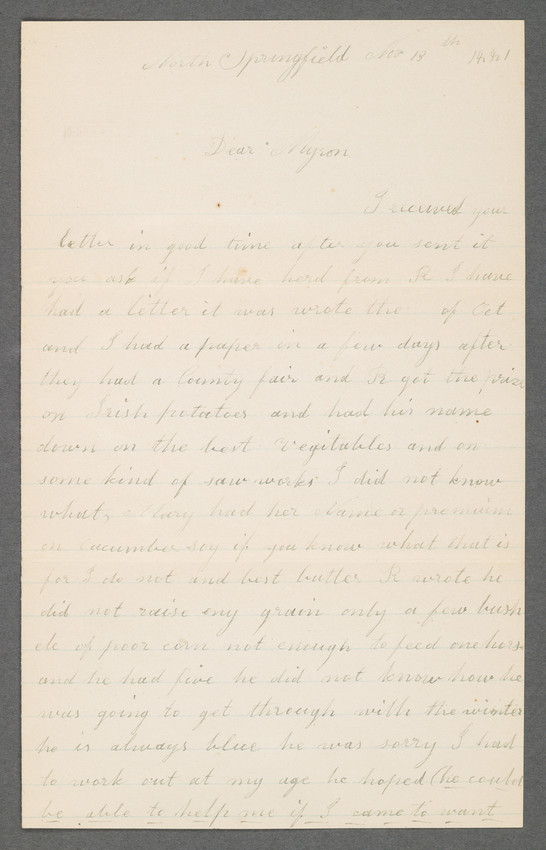 North Springfield Nov 13th 1881
Dear Myron
I received your
letter in good time after you sent it
you ask if I have herd from R I have
had a letter it was wrote the of Oct
and I had a paper in a few days after
they had a County fair and R got the prize
on Irish potatoes and had his name
down on the best vegitables and on
some kind of saw works I did not know
what, Mary had her Name or premium
on Cucumber soy if you know what that is
for I do not and best butter R wrote he
did not raise eny grain only a few bush
els of poor corn not enough to feed one horse
and he had five he did not know how he
was going to get through with the winter
he is always blue he was sorry I had
to work out at my age he hoped (he could
be able to help me if I came to want